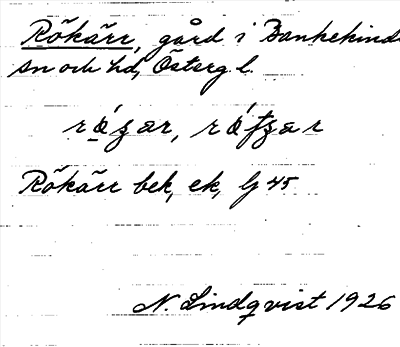 Rökärr, gård i Bankekind
sn och hd, Österg. l.
Rökärr bek, ek, G 45
N. Lindqvist 1926